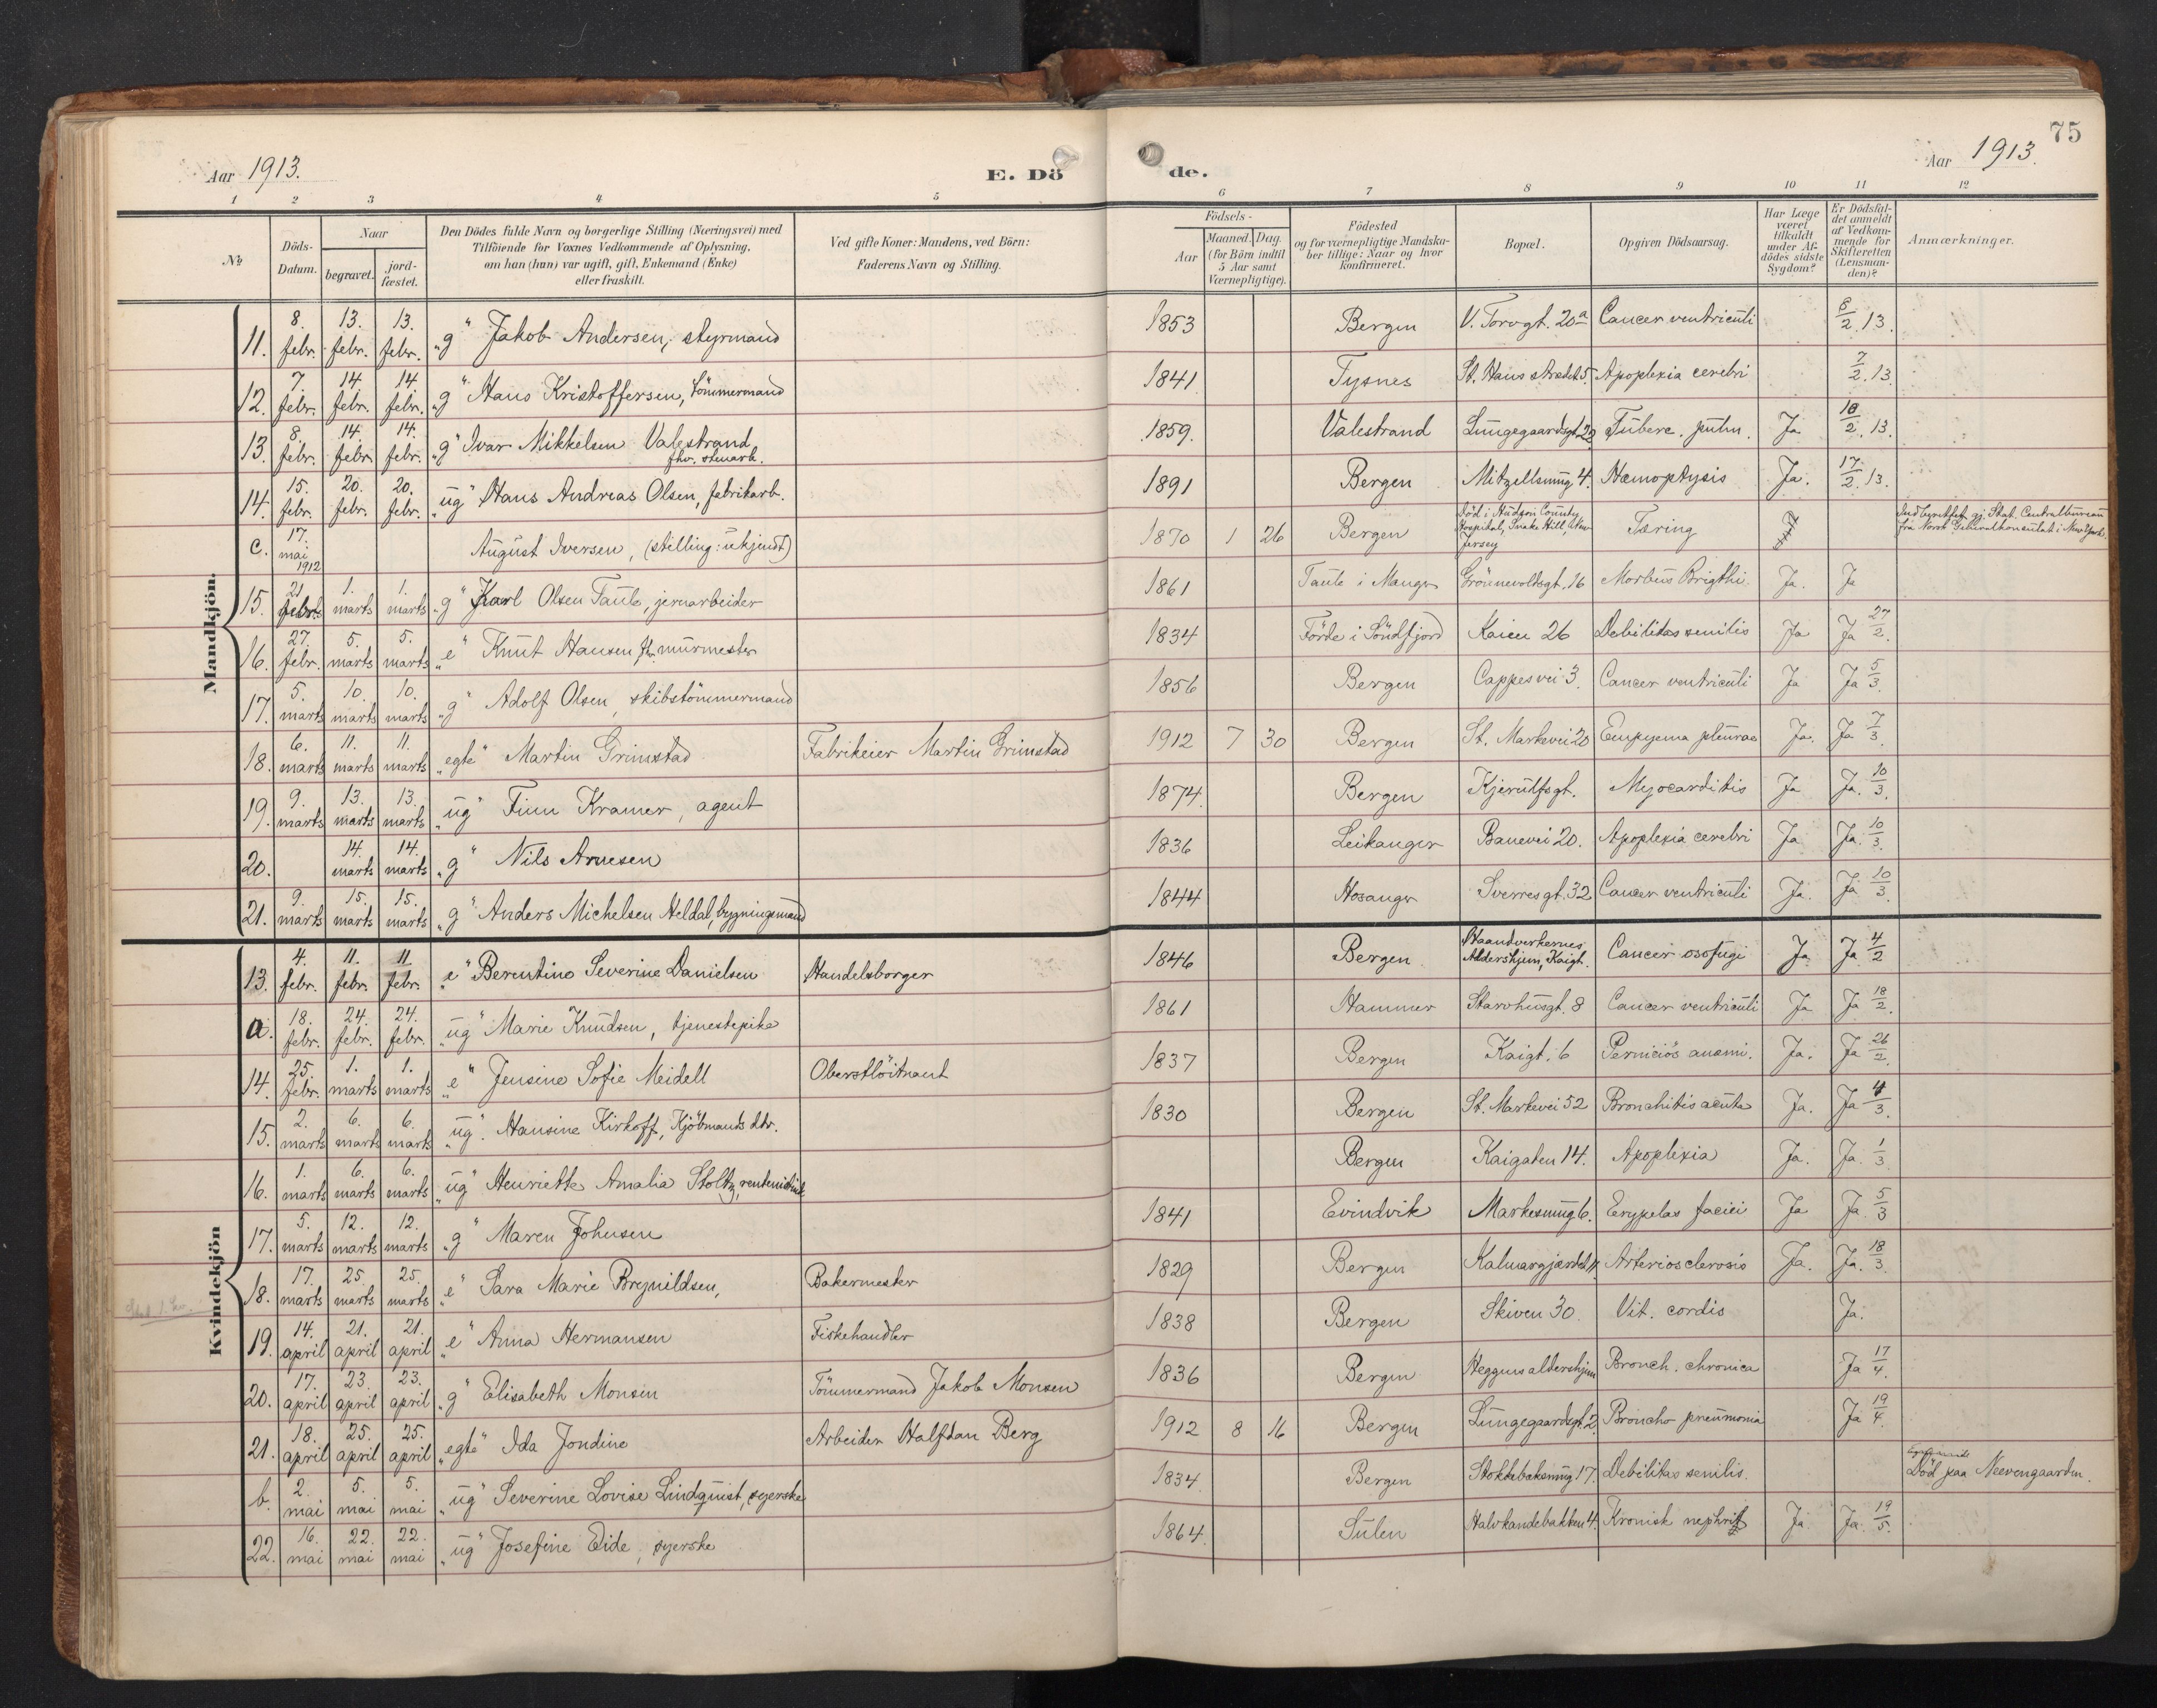 75
Aar 1913.
E. Dö de.
Aar 1913.
1 2 3 4 5 6 7 8 9 10 11 12
№
Döds-Datum.
Naar
begravet.
jord-fæstet.
Den Dödes fulde Navn og borgerlige Stilling (Næringsvei) med
Tilföiende for Voxnes Vedkommende af Oplysning,
om han (hun) var ugift, gift, Enkemand (Enke)
eller fraskilt.
Ved gifte Koner: Mandens, ved Börn:
Faderens Navn og Stilling.
Födsels-
Aar
Maaned. Dag.
(for Börn indtil
5 Aar samt
Værnepligtige).
Födested
og for værnepligtige Mandska-
ber tillige: Naar og hvor
konfirmeret.
Bopæl.
Opgiven Dödsaarsag.
Har Læge
været
tilkaldt
under Af-
dödes sidste
Sygdom?
Er Dödsfal-
det anmeldt
af Vedkom-
mende for
Skifteretten
(Lensman-
den)?
Anmærkninger.
Mandkjön.
11. 8. febr. 13. febr. 13. febr. "g" Jakob Andersen, styrmand 1853 Bergen V. Torvgt. 20a Cancer ventriculi 8/2.13.
12. 7. febr. 14. febr. 14. febr. "g" Hans Kristoffersen, tömmermand 1841 Tysnes St. Hans strædet 5. Apoplexia cerebri 7/2.13.
13. 8. febr. 14. febr. 14. febr. "g" Ivar Mikkelsen Valestrand fhv. stenarb. 1859. Valestrand Lungegaardsgt. 22 Tuberc. pulm. Ja 10/2.13.
14. 15. febr. 20. febr. 20. febr. "ug" Hans Andreas Olsen, fabrikarb. 1891 Bergen Mitzellsmug 4. Hæmoptysis Ja. 17/2.13.
c. 17. mai 1912 August Iversen, (stilling: ukjendt) 1870 1 26 Bergen Död i Hudson County Hospital, Snake Hill, New Jersey Tæring Indberettet gj. Stat. Centralbureau fra Norsk Generalkonsulat i New York.
15. 21 febr. 1. marts 1. marts "g" Karl Olsen Taule, jernarbeider 1861 Taule i Manger Grönnevoldsgt. 16 Morbus Brigthi. Ja. Ja
16. 27. febr. 5. marts 5. marts "e" Knut Hansen fhv. murmester 1834 Förde i Söndfjord Kaien 26 Debilitas senilis Ja Ja 27/2.
17. 5. marts 10. marts 10. marts "g" Adolf Olsen, skibstömmermand 1856 Bergen Cappesvei 3. Cancer ventriculi Ja Ja 5/3.
18. 6. marts 11. marts 11. marts "egte" Martin Grimstad Fabrikeier Martin Grimstad 1912 7 30 Bergen St. Markevei 20 Empyema pleurae Ja. Ja 7/3.
19. 9. marts 13. marts 13. marts "ug" Finn Kramer, agent 1874. Bergen Kjerulfsgt. Myocarditis Ja Ja. 10/3.
20. 14. marts 14. marts "g" Nils Arnesen 1836 Leikanger Banevei 20. Apoplexia cerebri Ja Ja. 10/3.
21. 9. marts 15. marts 15. marts "g" Anders Michelsen Heldal, bygningsmand 1844 Hosanger Sverresgt. 32 Cancer ventriculi Ja. Ja 10/3.
Kvindekjön
13. 4. febr. 11. febr. 11. febr. "e" Berentine Severine Danielsen Handelsborger 1846 Bergen Haandverkernes Aldershjem, Kaigt. Cancer osofugi Ja Ja 4/2
a. 18. febr. 24. febr. 24. febr. "ug" Marie Knudsen, tjenestepike 1861 Hammer Starvhusgt. 8 Cancer ventriculi Ja Ja 18/2.
14. 25. febr. 1. marts 1. marts "e" Jensine Sofie Meidell Oberstlöitnant 1837 Bergen Kaigt. 6 Perniciös anæmi. Ja. Ja 26/2.
15. 2. marts 6. marts 6. marts "ug". Hansine Kirkoff, Kjöbmands dtr. 1830 Bergen St. Markevei 52 Bronchitis acuta Ja. Ja 4/3.
16. 1. marts 6. marts 6. marts "ug" Henriette Amalia Stoltz, rentenistinde Bergen Kaigaten 14. Apoplexia Ja. Ja. 1/3.
17. 5. marts 12. marts 12. marts "g" Maren Johnsen 1841 Evindvik Markesmug 6. Erypelas faciei Ja Ja. 5/3
18. 17. marts 25. marts 25. marts "e" Sara Marie Brynildsen, Bakermester 1829 Bergen Kalmargjærdet 11. Arteriosclerosis Ja. Ja. 18/3.
19. 14. april 21. april 21. april "e" Anna Hermansen Fiskehandler 1838 Bergen Skiven 30 Vit. cordis Ja.
20. 17. april 23. april 23. april "g" Elisabeth Monsen Tömmermand Jakob Monsen 1836 Bergen Heggens aldershjem Bronch. chronica Ja 17/4.
21. 18. april 25. april 25. april "egte" Ida Jondine Arbeider Halfdan Berg 1912 8 16 Bergen Lungegaardsgt. 2. Broncho pneumonia Ja 19/4.
b. 2. mai 5. mai 5. mai "ug" Severine Lovise Lindquist, syerske 1834. Bergen Stokkebaksmug 17. Debilitas senilis. Död paa Neevengaarden.
22. 16. mai 22. mai 22. mai "ug" Josefine Eide, syerske 1864. Sulen Halvkandebakken 4. Kronisk nephrit Ja Ja. 19/5.